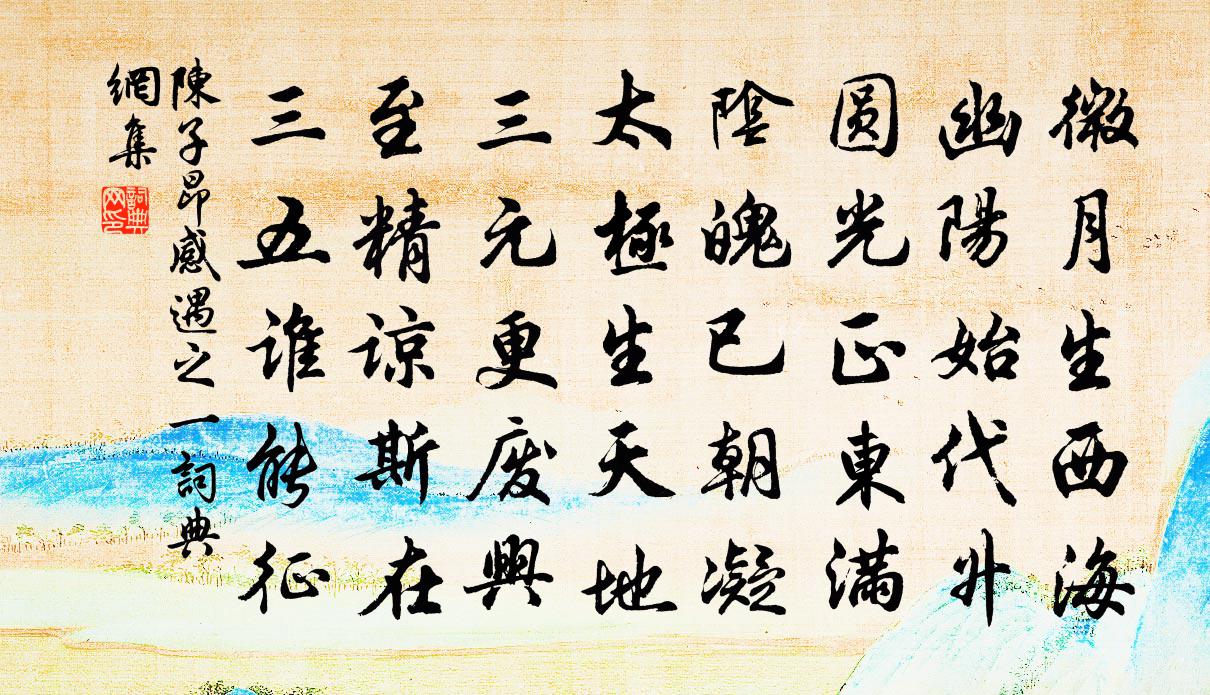 微月生西海
幽陽始代升
圓光正東滿
陰魄已朝凝
太極生天地
三元更廢興
至精諒斯在
三五誰能征
陳子昂感遇之一詞典
網集
詞典
网印